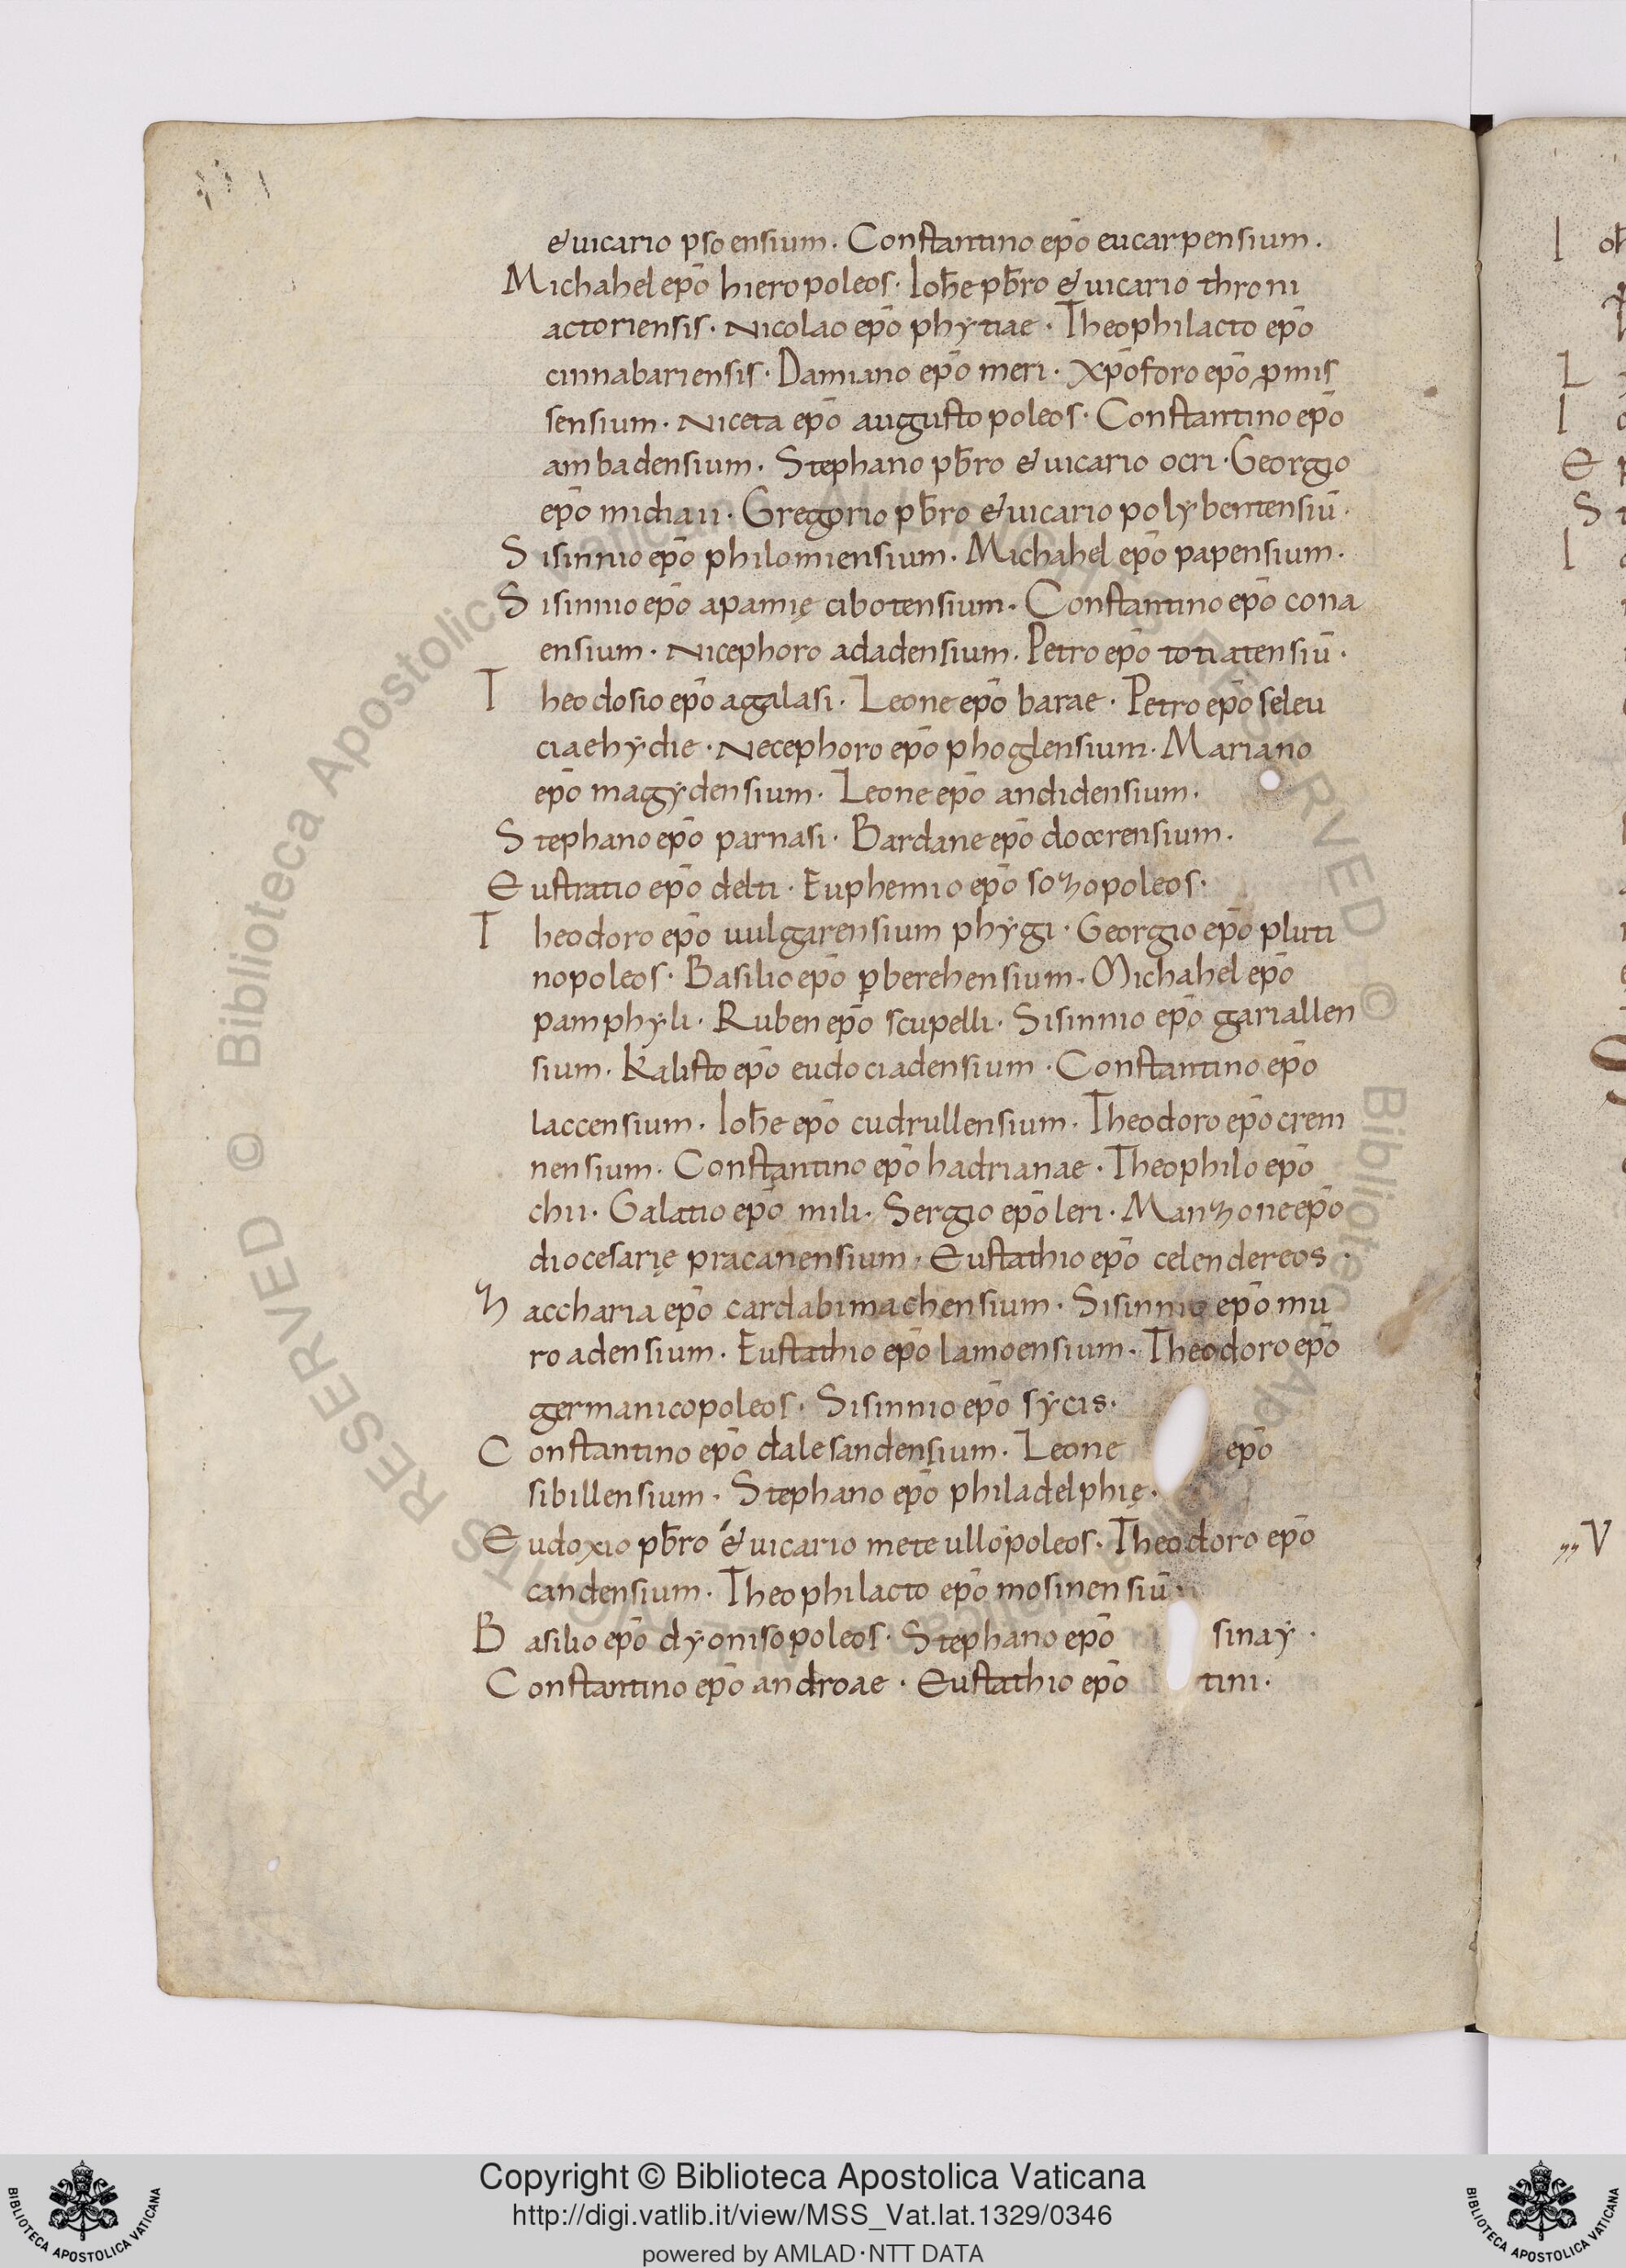 &uicario psoensium. Constantino ep̄o eucarpensium.
Michahel ep̄o hieropoleos. Ioh̄e pb̄ro &uicario throni
actoriensis. Nicolao ep̄o phẏtiae. Theophilacto ep̄o
cinnabariensis. Damiano ep̄o meri. Xp̄oforo ep̄o ꝑmis
sensium. Niceta ep̄o augustopoleos. Constantino ep̄o
ambadensium. Stephano pb̄ro &uicario ocri. Georgio
ep̄o midiaii. Gregorio pb̄ro &uicario polẏbentensiū.
Sisinnio ep̄o philomiensium. Michahel ep̄o papensium.
Sisinnio ep̄o apamię cibotensium. Constantino ep̄o cona
ensium. Nicephoro adadensium. Petro ep̄o totiatensiū.
Theodosio ep̄o agalasi. Leone ep̄o barae. Petro ep̄o seleu
ciaehẏdie. Necephoro ep̄o phoglensium. Mariano
ep̄o magẏdensium. Leone ep̄o andidensium.
Stephano ep̄o parnasi. Bardane ep̄o docerensium.
Eustratio ep̄o delti. Euphemio ep̄o sozopoleos.
Theodoro ep̄o uulgarensium phẏgi. Georgio ep̄o pluti
nopoleos. Basilio ep̄o ꝑberehensium. Michahel ep̄o
pamphẏli. Ruben ep̄o scupelli. Sisinnio ep̄o gariallen
sium. Kalisto ep̄o eudociadensium. Constantino ep̄o
laccensium. Ioh̄e ep̄o cudrullensium. Theodoro ep̄o crem
nensium. Constantino ep̄o hadrianae. Theophilo ep̄o
chii. Galatio ep̄o mili. Sergio ep̄o leri. Manzone ep̄o
diocesarię pracanensium. Eustathio ep̄o celendereos.
Zaccharia ep̄o cardabimachensium. Sisinnio ep̄o mu
roadensium. Eustathio ep̄o lamoensium. Theodoro ep̄o
germanicopoleos. Sisinnio ep̄o sẏcis.
Constantino ep̄o dalesandensium. Leone ep̄o
sibillensium. Stephano ep̄o philadelphię.
Eudoxio pb̄ro &uicario meteullopoleos. Theodoro ep̄o
candensium. Theophilacto ep̄o mosinensiū.
Basilio ep̄o dẏonisopoleos. Stephano ep̄o sinaẏ.
Constantino ep̄o androae. Eustathio ep̄o tini.
Copyright © Biblioteca Apostolica Vaticana
http://digi.vatlib.it/view/MSS_Vat.lat.1329/0346
powered by AMLAD·NTT DATA
BIBLIOTECA APOSTOLICA VATICANA
BIBLIOTECA APOSTOLICA VATICANA